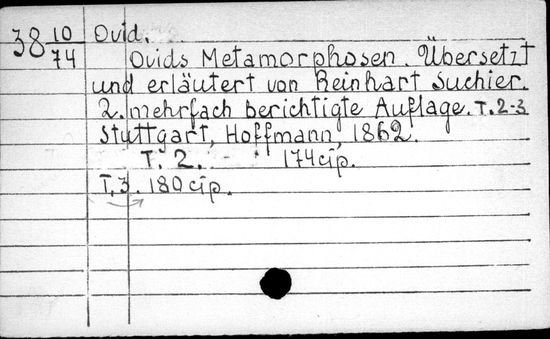 38 10/74 Ovid.
Ovids Metamorphosen. Übersetzt
und erläutert von Reinhart Suchier.
2. mehrfach berichtigte Auflage. T. 2-3
Stuttgart, Hoffmann, 1862.
T. 2. 174 cip.
T. 3. 180 cip.